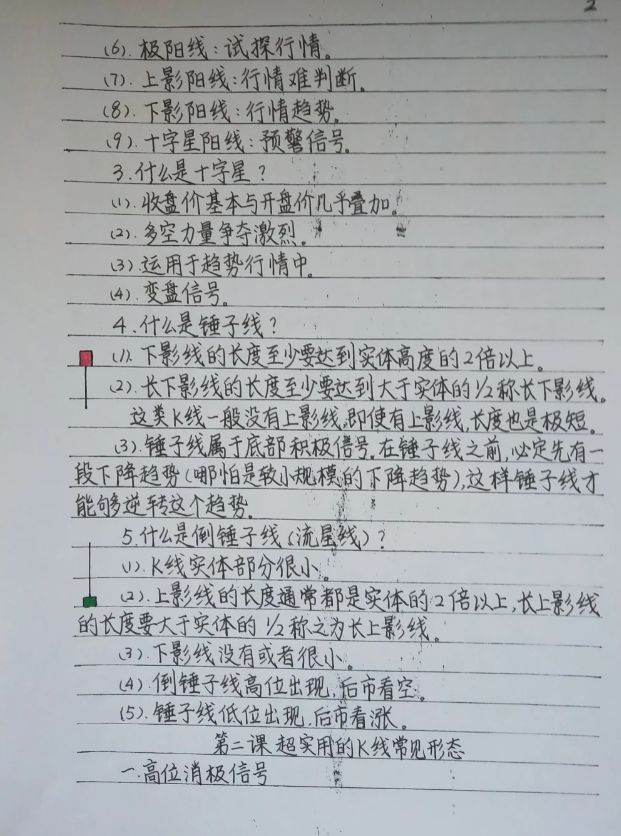 2
(6). 极阳线:试探行情。
(7). 上影阳线:行情难判断。
(8). 下影阳线:行情趋势。
(9). 十字星阳线:预警信号。
3.什么是十字星?
(1). 收盘价基本与开盘价几乎叠加。
(2). 多空力量争夺激烈。
(3). 运用于趋势行情中。
(4). 变盘信号。
4.什么是锤子线?
(1). 下影线的长度至少要达到实体高度的2倍以上。
(2). 长下影线的长度至少要达到大于实体的1/2称长下影线。
这类K线一般没有上影线,即使有上影线,长度也是极短。
(3). 锤子线属于底部积极信号。在锤子线之前,必定先有一
段下降趋势(哪怕是较小规模的下降趋势),这样锤子线才
能够逆转这个趋势。
5.什么是倒锤子线(流星线)?
(1). K线实体部分很小。
(2). 上影线的长度通常都是实体的2倍以上,长上影线
的长度要大于实体的1/2称之为长上影线。
(3). 下影线没有或者很小。
(4). 倒锤子线高位出现,后市看空。
(5). 锤子线低位出现,后市看涨。
第二课 超实用的K线常见形态
一.高位消极信号